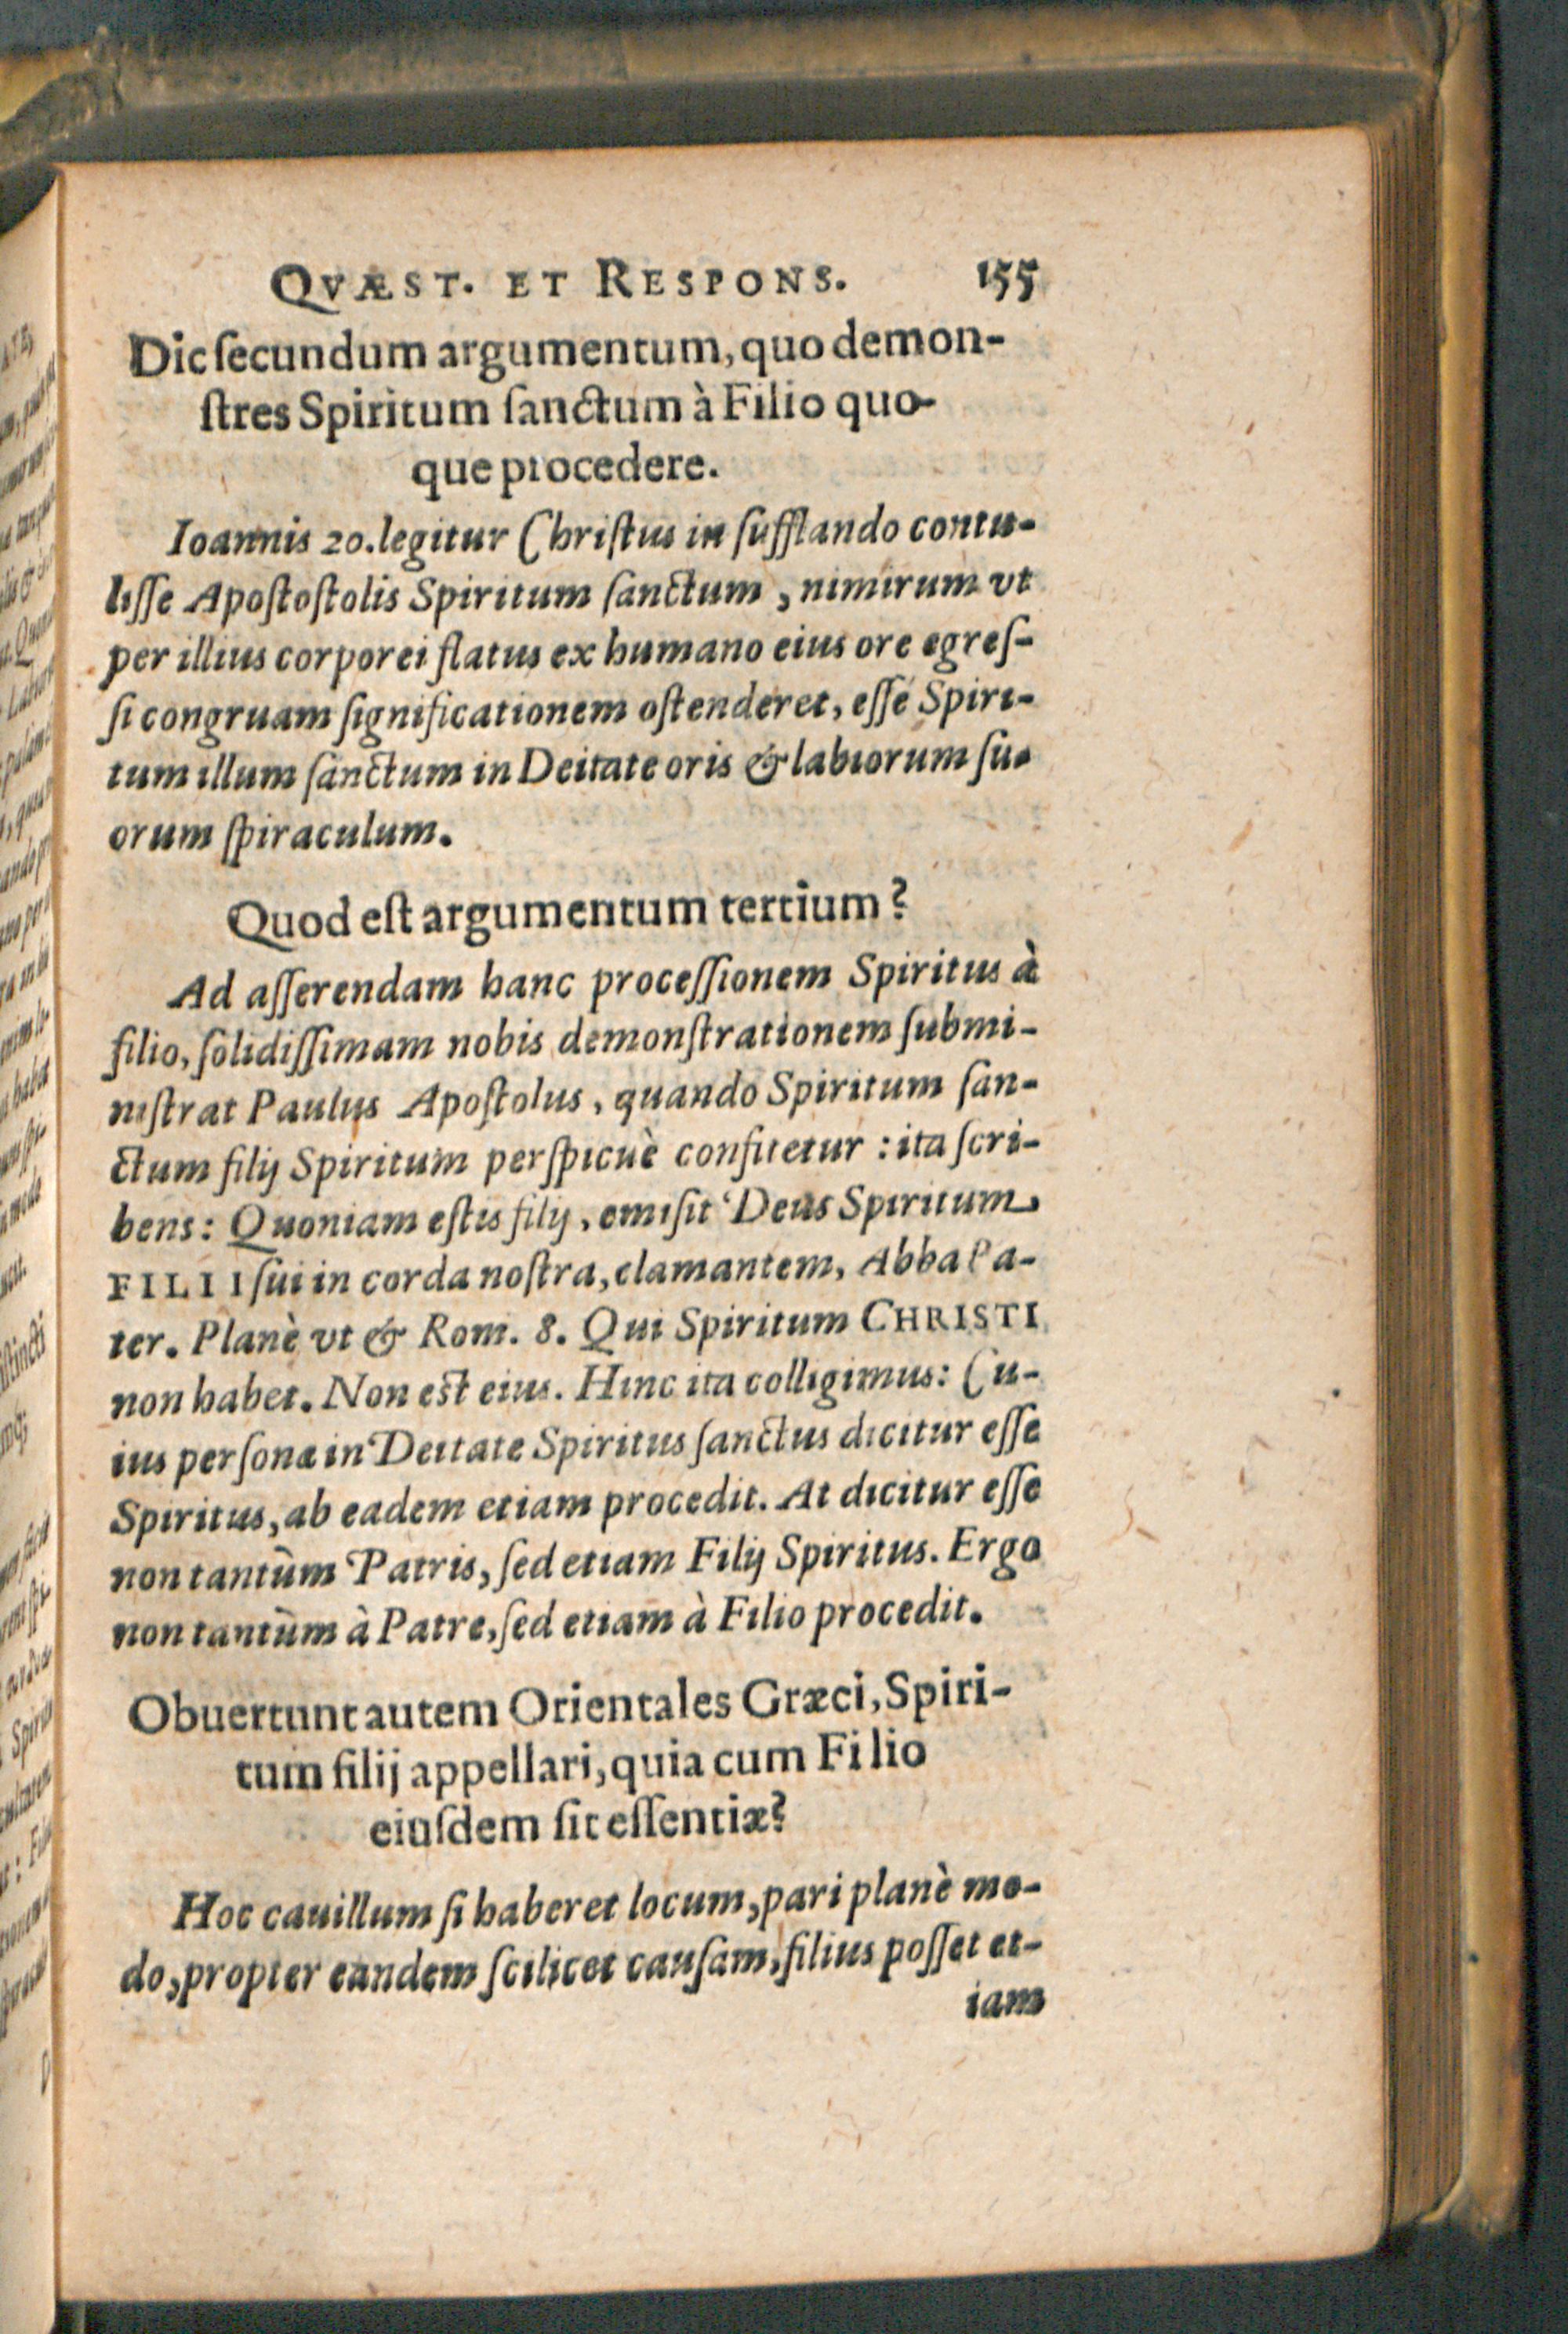 QVÆST. ET RESPONS. 155
Dic ſecundum argumentum, quo demon-
ſtres Spiritum ſanctum à Filio quo-
que procedere.
Ioannis 20. legitur Chriſtus in ſufflando contu-
liſſe Apoſtoſtolis Spiritum ſanctum, nimirum vt
per illius corporei flatus ex humano eius ore egreſ-
ſi congruam ſignificationem oſtenderet, eſſe Spiri-
tum illum ſanctum in Deitate oris & labiorum ſu-
orum ſpiraculum.
Quod eſt argumentum tertium?
Ad aſſerendam hanc proceſſionem Spiritus à
filio, ſolidiſſimam nobis demonſtrationem ſubmi-
niſtrat Paulus Apoſtolus, quando Spiritum ſan-
ctum filij Spiritum perſpicuè confitetur: ita ſcri-
bens: Quoniam eſtis filij, emiſit Deus Spiritum
FILII ſui in corda noſtra, clamantem, Abba Pa-
ter. Planè vt & Rom. 8. Qui Spiritum CHRISTI
non habet. Non eſt eius. Hinc ita colligimus: Cu-
ius perſonæ in Deitate Spiritus ſanctus dicitur eſſe
Spiritus, ab eadem etiam procedit. At dicitur eſſe
non tantùm Patris, ſed etiam Filij Spiritus. Ergo
non tantùm à Patre, ſed etiam à Filio procedit.
Obuertunt autem Orientales Græci, Spiri-
tum filij appellari, quia cum Filio
eiuſdem ſit eſſentiæ?
Hoc cauillum ſi haberet locum, pari planè mo-
do, propter eandem ſcilicet cauſam, filius poſſet et-
iam